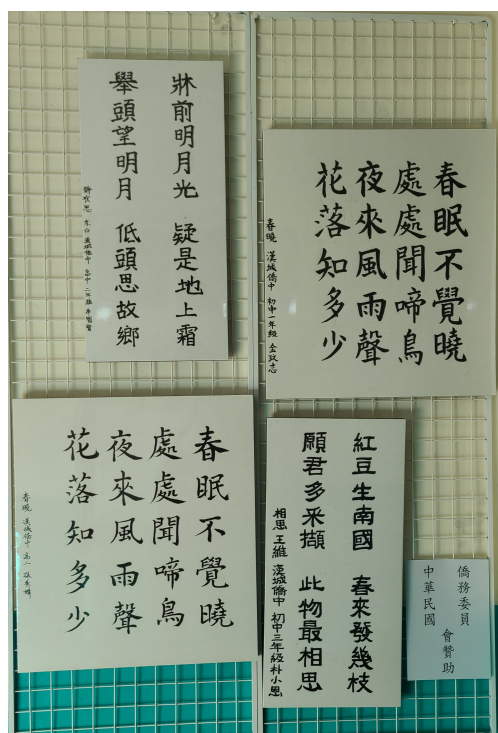 牀前明月光 疑是地上霜
舉頭望明月 低頭思故鄉
春眠不覺曉
處處聞啼鳥
夜來風雨聲
花落知多少
春曉 漢城僑中 初中一年級 金玟志
春眠不覺曉
處處聞啼鳥
夜來風雨聲
花落知多少
春曉 漢城僑中 高二
紅豆生南國 春來發幾枝
願君多采擷 此物最相思
相思 王維 漢城僑中 初中三年級 朴小恩
僑務委員
會贊助
中華民國